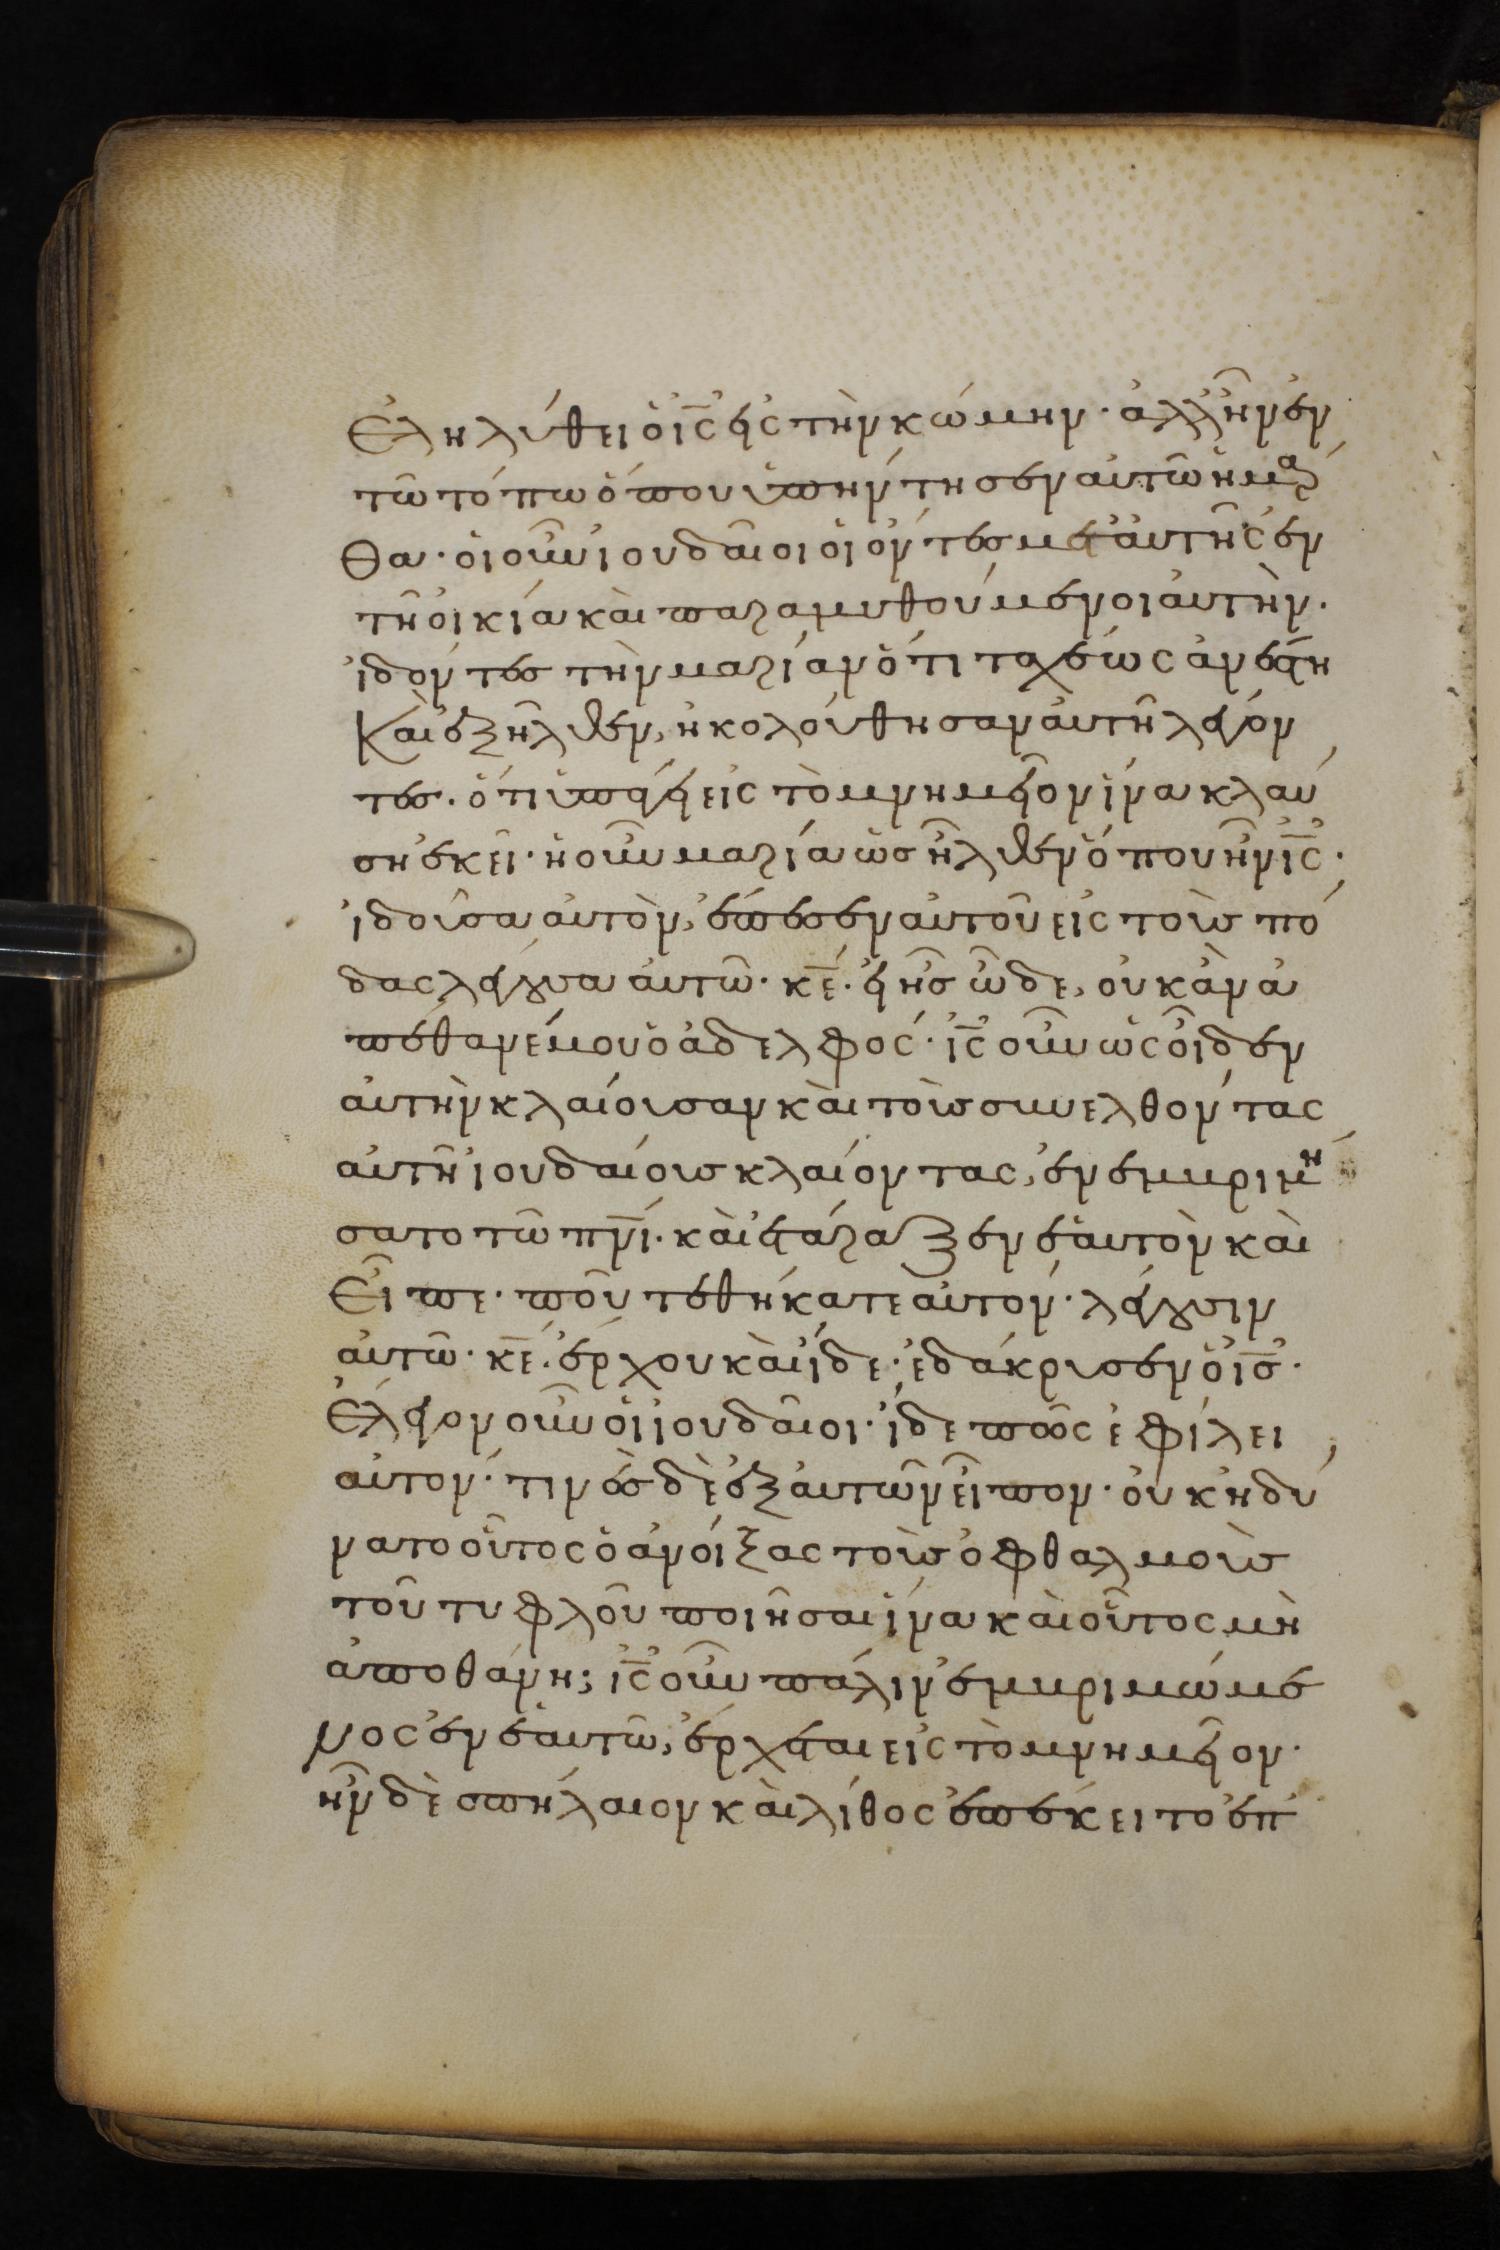 Ἐληλύθει ὁ ἰς̅ εἰς τὴν κώμην· ἀλλ ἦν ἐν
τῶ τόπω ὅπου ὑπήντησεν αὐτῶ ἡ μάρ
θα· οἱ οὖν ἰουδαῖοι οἱ ὄντες μετ αὐτῆς ἐν
τῆ οἰκία καὶ παραμυθούμενοι αὐτὴν·
ἰδόντες τὴν μαρίαν ὅτι ταχέως ἀνέστη
Καὶ ἐξῆλθεν, ἠκολούθησαν αὐτῆ λέγον
τες· ὅτι ὑπάγει εἰς τὸ μνημεῖον ἵνα κλαύ
ση ἐκεῖ· ἡ οὖν μαρία ὡς ἦλθεν ὅπου ἦν ἰς̅·
ἰδοῦσα αὐτὸν, ἔπεσεν αὐτοῦ εἰς τοὺς πό
δας λέγουσα αὐτῶ· κε̅· εἰ ἦς ὧδε, οὐκ ἂν ἀ
πέθανέ μου ὁ ἀδελφός· ἰς̅ οὖν ὡς οἶδεν
αὐτὴν κλαίουσαν καὶ τοὺς συνελθόντας
αὐτῆ ἰουδαίους κλαίοντας, ἐνεμβριμή
σατο τῶ πνι̅· καὶ ἐτάραξεν ἑαυτὸν καὶ
Εἶπε· ποῦ τεθήκατε αὐτόν· λέγουσιν
αὐτῶ· κε̅· ἔρχου καὶ ἴδε· ἐδάκρυσεν ὁ ἰς̅·
Ἔλεγον οὖν οἱ ἰουδαῖοι· ἴδε πῶς ἐφίλει
αὐτόν· τινὲς δὲ ἐξ αὐτῶν εἶπον· οὐκ ἠδύ
νατο οὗτος ὁ ἀνοίξας τοὺς ὀφθαλμοὺς
τοῦ τυφλοῦ ποιῆσαι ἵνα καὶ οὗτος μὴ
ἀποθάνη; ἰς̅ οὖν πάλιν ἐμβριμώμε
νος ἐν ἑαυτῶ, ἔρχεται εἰς τὸ μνημεῖον·
ἦν δὲ σπήλαιον καὶ λίθος ἐπέκειτο ἐπ